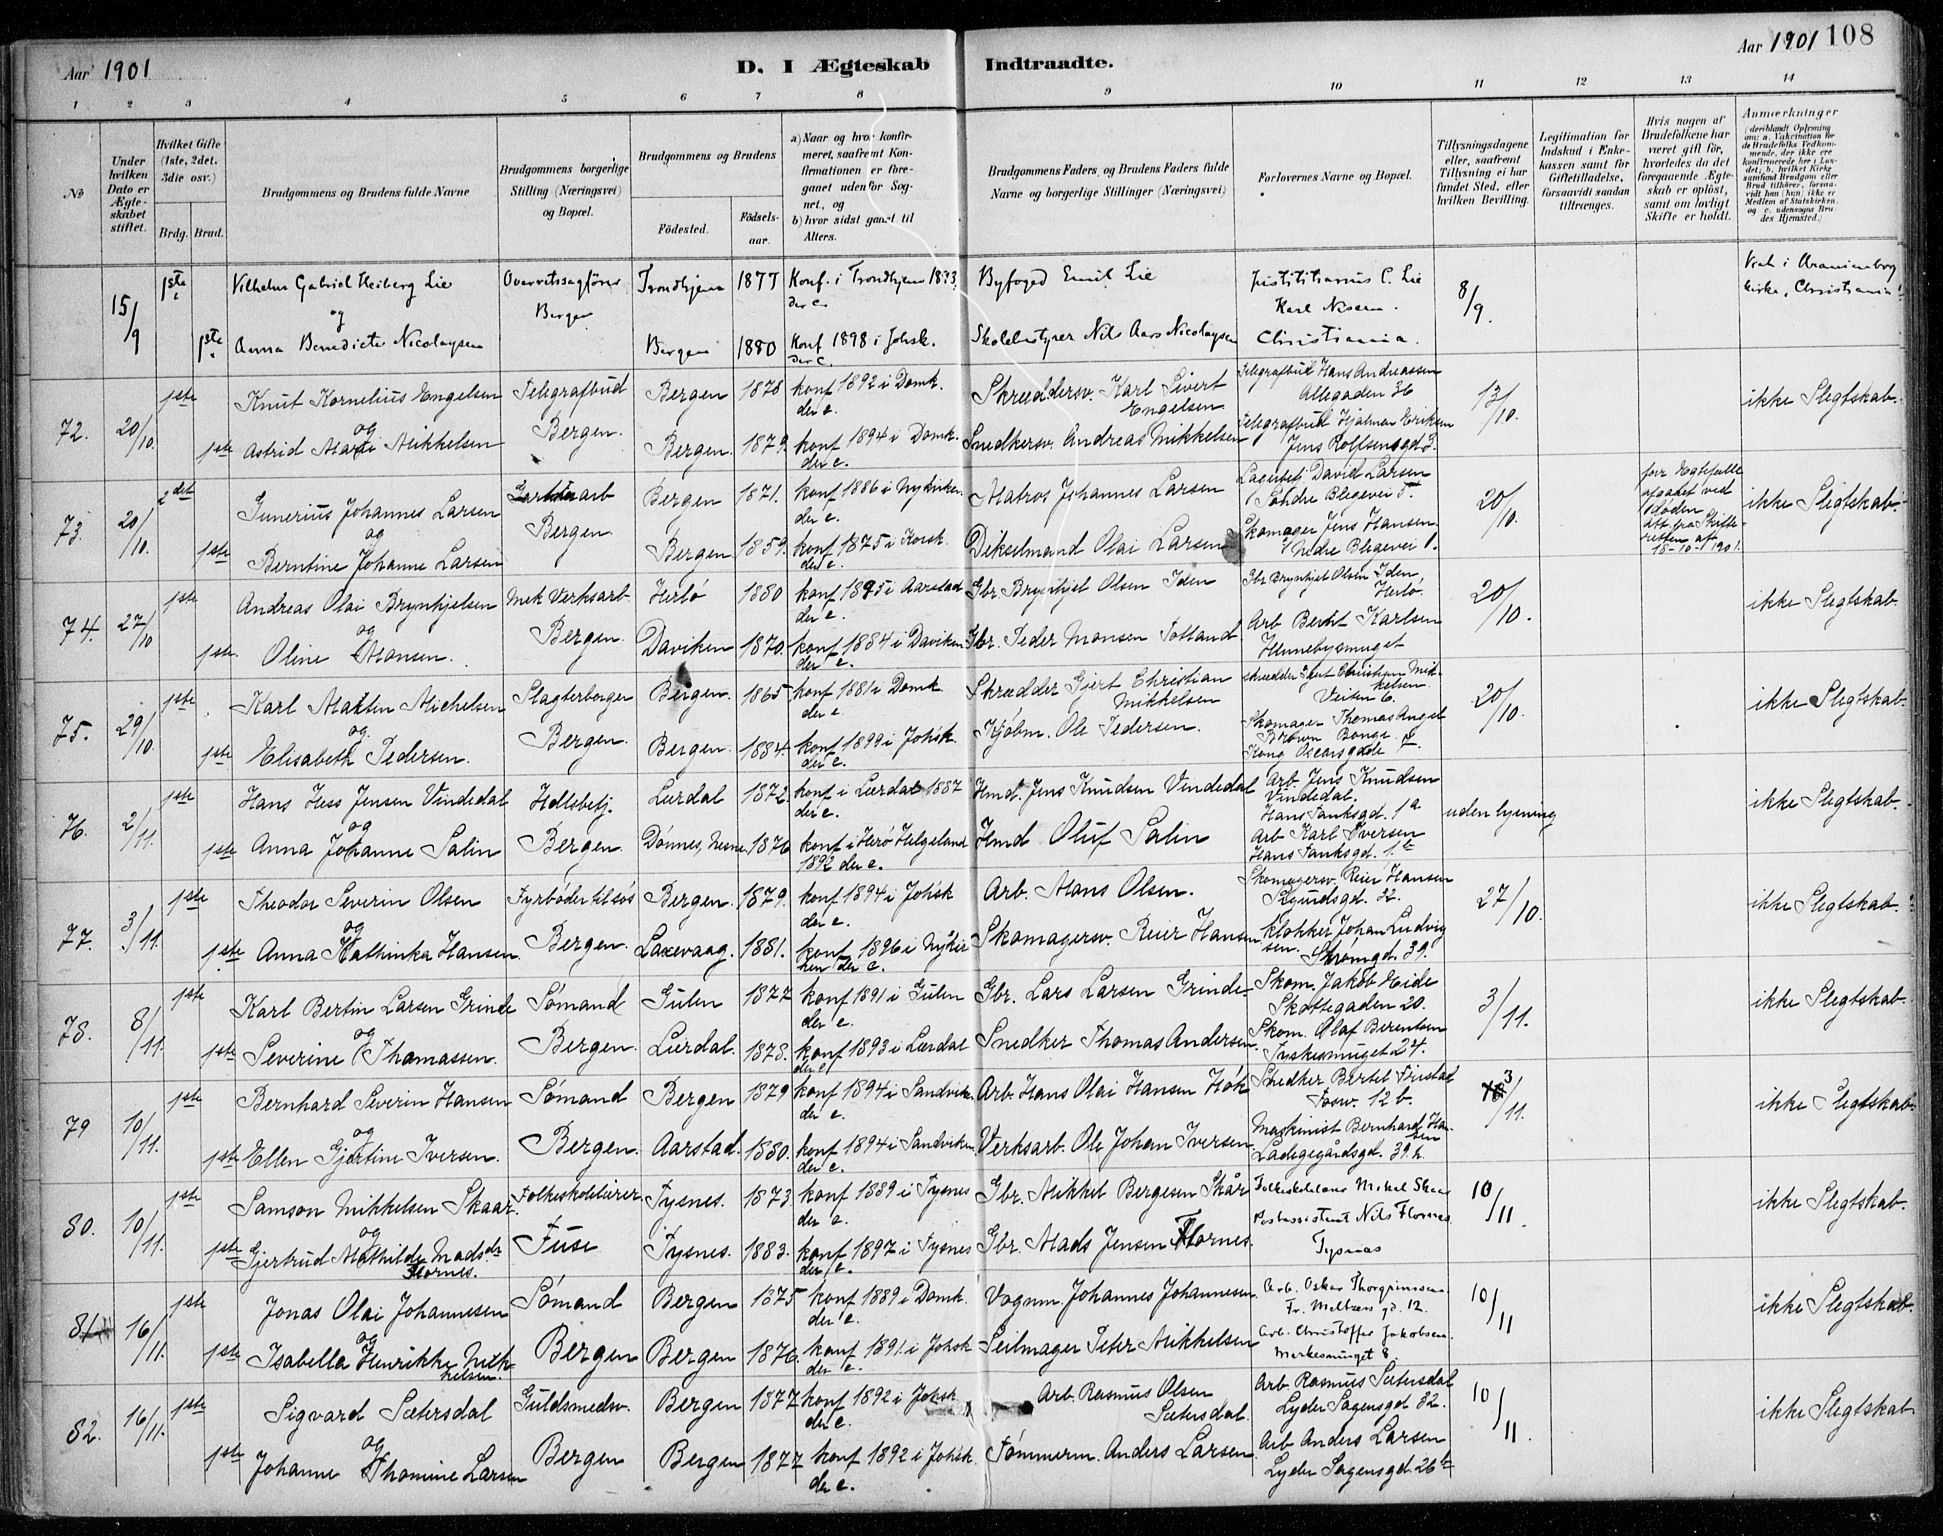 Aar 1901
D. I Ægteskab Indtraadte.
Aar 1901 108
1 2 3 4 5 6 7 8 9 10 11 12 13 14
No
Under hvilken Dato er Ægteskabet stiftet.
Hvilket Gifte (1ste, 2det, 3die osv.)
Brdg. Brud.
Brudgommens og Brudens fulde Navne
Brudgommens borgerlige Stilling (Næringsvei) og Bopæl.
Brudgommens og Brudens
Fødested. Fødselsaar.
a) Naar og hvor konfirmeret, saafremt Konfirmationen er foregaaet udenfor Sognet, og
b) hvor sidst gaaet til Alters.
Brudgommens Faders og Brudens Faders fulde Navne og borgerlige Stillinger (Næringsvei)
Forlovernes Navne og Bopæl.
Tillysningsdagene eller, saafremt Tillysning ei har fundet Sted, efter hvilken Bevilling.
Legitimation for Indskud i Enkekassen samt for Giftetilladelse, forsaavidt saadan tiltrænges.
Hvis nogen af Brudefolkene har været gift før, hvorledes da det foregaaende Ægteskab er opløst, samt om lovligt Skifte er holdt.
Anmærkninger (deriblandt Oplysning om: a. Vakcination for de Brudefolks Vedkommende, der ikke ere konfirmerede her i Landet; b. hvilket Kirkesamfund Brudgom eller Brud tilhører, forsaavidt han (hun) ikke er Medlem af Statskirken, og c. udensogns Brudes Hjemsted.)
15/9 1ste Vilhelm Gabriel Heiberg Lie Overretssagfører Trondhjem 1877 Konf. i Trondhjem Byfoged Emil Lie Justitiarius C. Lie 8/9 Viet i Uranienborg
og Bergen der c. Karl Nissen. Kirke, Christiania
1ste Anna Benedicte Nicolaysen Bergen 1880 Konf 1898 i Johsk. der c. Skolebestyrer Nils Aars Nicolaysen Christiania.
72. 20/10. 1ste Knut Kornelius Engelsen Telegrafbud Bergen 1878 konf 1892 i Domk. der c. Skræddersv. Karl Sivert Engelsen Telegrafbud Hans Andreassen Allegaden 36 13/10. ikke Slegtskab.
og Bergen.
1ste Astrid Marti Mikkelsen Bergen. 1879. konf 1894 i Domk. der c. Snedkersv. Andreas Mikkelsen Telegrafbud Hjalmar Eriksen Jens Rolfsensgd 3.
73. 20/10. 2det Gunerius Johannes Larsen Bergen 1871. konf 1886 i Nykirken der c. Matros Johannes Larsen Lagerbetj David Larsen Søndre Blegevei 5. 20/10. ikke Slegtskab.
og Bergen
18-10-1901.
1ste Berntine Johanne Larsen Bergen 1859. konf 1875 i Korsk. der c. Dikselmand Olai Larsen Skomager Jens Hansen Blegevei 1.
74. 27/10 1ste Andreas Olai Brynhjelsen Mek Verksarb. Herlø 1880 konf 1895 i Aarstad der c. Gbr Brynhjel Olsen Iden Gbr Brynhjel Olsen Iden Herlø. 20/10. ikke Slegtskab.
og Bergen.
1ste. Oline Monsen. Daviken 1870. konf 1884 i Daviken der c. Gbr. Peder Monsen Totland Arb Berht Karlsen Hennebysmuget
75. 29/10. 1ste Karl Martin Michelsen Slagterborger Bergen. 1865 konf 1881 i Domk. der c. Skrædder Gjert Christian Mikkelsen Skrædder Gjert Christian Mikkelsen Veiten 6. 20/10. ikke Slegtskab.
og Bergen.
1ste Elisabeth Pedersen. Bergen. 1884. konf 1899 i Johsk. der c. Kjøbm. Ole Pedersen. Skomager Thomas Angel Brown Bonge Kong Oscarsgade
76. 2/11. 1ste Hans Hess Jensen Vindedal Hdlsbetj. Lærdal 1872. konf i Lærdal 1887 der c. Hmd. Jens Knudsen Vindedal Arb. Jens Knudsen Vindedal. Hans Tanksgd. 1a uden lysning ikke Slegtskab.
og Bergen.
1ste Anna Johanne Salin Dønnes, Nesne 1876 konf i Herø Helgeland 1892 der c. Hmd Oluf Salin Arb Karl Iversen Hans Tanksgd.
77. 3/11. 1ste Theodor Severin Olsen Fyrbøder tilsøs Bergen. 1879. konf 1894 i Johsk der c. Arb. Mons Olsen. Skomagersv. Reier Hansen Sigurdsgd. 32. 27/10. ikke Slegtskab.
og Bergen.
1ste Anna Mathinka Hansen Laxevaag. 1881. konf 1896 i Nykirken der c. Skomagersv. Reier Hansen klokker Johan Ludvigsen. Strømgd. 39.
78. 8/11. 1ste Karl Bertin Larsen Grinde Sømand Gulen 1877 konf 1891 i Gulen der c. Gbr. Lars Larsen Grinde Skom. Jakob Heide Skottegaden 20. 3/11. ikke Slegtskab.
og Bergen.
1ste Severine Thomassen. Lærdal. 1878. konf 1893 i Lærdal der c. Snedker Thomas Andersen Skom. Olaf Berentsen Tyskesmuget 24.
79 10/11. 1ste Bernhard Severin Hansen Sømand Bergen 1879 konf 1894 i Sandviken der c. Arb. Hans Olai Hansen Høk Snedker Bertel Fristad Fosw. 12 b. 3/11. ikke Slegtskab.
og Bergen.
1ste Ellen Gjertine Iversen. Aarstad. 1880. konf 1894 i Sandviken der c. Verksarb. Ole Johan Iversen Maskinist Bernhard Hansen Ladegegårdsgd. 39
80. 10/11. 1ste Samson Mikkelsen Skaar Folkeskolelærer Tysnes. 1873. konf 1889 i Tysnes der c. Gbr. Mikkel Bergesen Skår Folkeskolelærer Mikal Skaar 10/11. ikke Slegtskab.
og Fuse
1ste Gjertrud Mathilde Madsdr Flornes. Tysnes. 1883. konf 1897 i Tysnes der c. Gbr. Mads Jensen Flornes. Postassistent Nils Flornes Tysnes
81 16/11. 1ste Jonas Olai Johannesen Sømand Bergen 1875 konf 1889 i Domk. der c. Vognm. Johannes Johannesen Arb. Oskar Thorgrimsen Fr. Meltzers gd. 12. 10/11 ikke Slegtskab.
og Bergen
1ste Isabella Henrikke Mikkelsen. Bergen 1876. konf 1891 i Johsk der c. Seilmager Peter Mikkelsen Arb. Christoffer Jakobsen. Markesmuget 8.
82. 16/11. 1ste Sigvard Sætersdal Guldsmedsv. Bergen 1877 konf 1892 i Johsk der c. Arb. Rasmus Olsen Sætersdal. Arb Rasmus Sætersdal Lyder Sagensgd. 32. 10/11 ikke Slegtskab
og Bergen
1ste Johanne Thomine Larsen Bergen 1877 konf 1892 i Johsk. der c. Tømmerm. Anders Larsen Arb Anders Larsen Lyder Sagensgd. 26